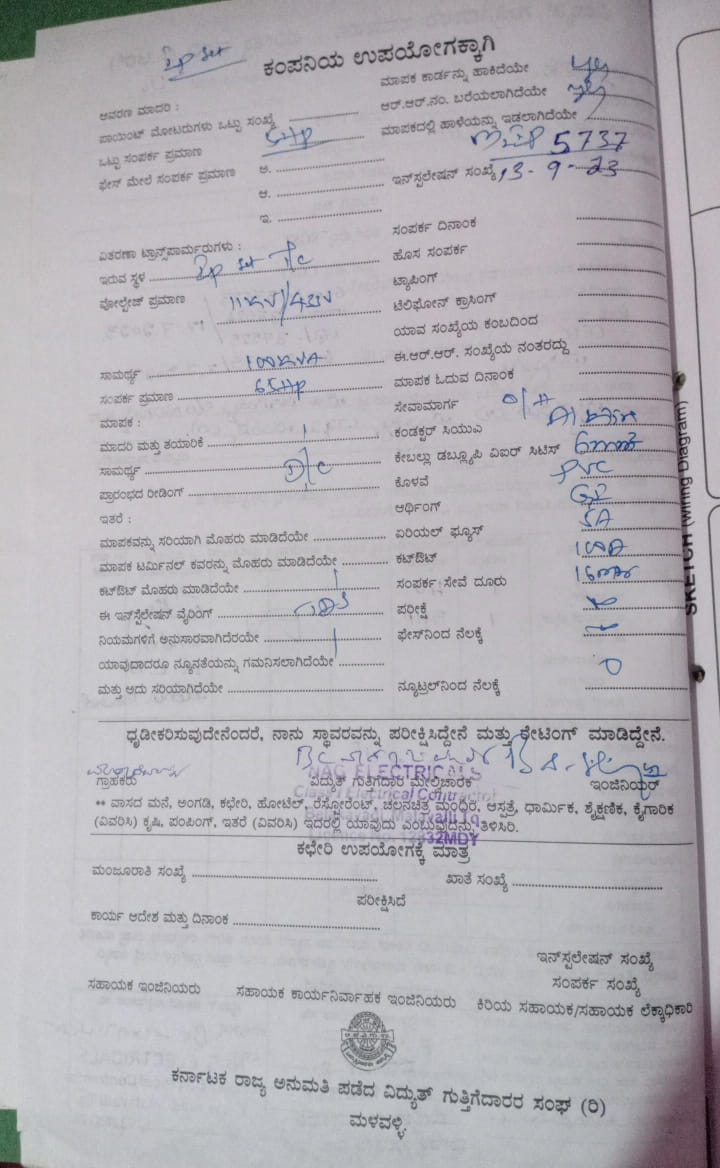 Ip set
ಕಂಪನಿಯ ಉಪಯೋಗಕ್ಕಾಗಿ
ಮಾಪಕ ಕಾರ್ಡನ್ನು ಹಾಕಿದೆಯೇ yes
ಆವರಣ ಮಾದರಿ :
ಆರ್.ಆರ್.ನಂ. ಬರೆಯಲಾಗಿದೆಯೇ yes
ಪಾಯಿಂಟ್ ಮೋಟರುಗಳು ಒಟ್ಟು ಸಂಖ್ಯೆ
ಮಾಪಕದಲ್ಲಿ ಹಾಳೆಯನ್ನು ಇಡಲಾಗಿದೆಯೇ
ಒಟ್ಟು ಸಂಪರ್ಕ ಪ್ರಮಾಣ 5Hp
5737
ಫೇಸ್ ಮೇಲೆ ಸಂಪರ್ಕ ಪ್ರಮಾಣ ಅ.
ಇನ್‌ಸ್ಟಲೇಷನ್ ಸಂಖ್ಯೆ 13-9-23
ಆ.
ಇ.
ಸಂಪರ್ಕ ದಿನಾಂಕ
ವಿತರಣಾ ಟ್ರಾನ್ಸ್‌ಪಾರ್ಮರುಗಳು :
ಹೊಸ ಸಂಪರ್ಕ
ಇರುವ ಸ್ಥಳ Ip set T/c
ಟ್ಯಾಪಿಂಗ್
ವೋಲ್ಟೇಜ್ ಪ್ರಮಾಣ 11KV/433V
ಟೆಲಿಫೋನ್ ಕ್ರಾಸಿಂಗ್
ಯಾವ ಸಂಖ್ಯೆಯ ಕಂಬದಿಂದ
ಸಾಮರ್ಥ್ಯ 100KVA
ಈ.ಆರ್.ಆರ್. ಸಂಖ್ಯೆಯ ನಂತರದ್ದು
ಸಂಪರ್ಕ ಪ್ರಮಾಣ 65Hp
ಮಾಪಕ ಓದುವ ದಿನಾಂಕ
ಮಾಪಕ :
ಸೇವಾಮಾರ್ಗ O/H
ಮಾದರಿ ಮತ್ತು ತಯಾರಿಕೆ
ಕಂಡಕ್ಟರ್ ಸಿಯುಎ
ಸಾಮರ್ಥ್ಯ D/C
ಕೇಬಲ್ಲು ಡಬ್ಲ್ಯೂಪಿ ವಿಐರ್ ಸಿಟಿಸ್
ಪ್ರಾರಂಭದ ರೀಡಿಂಗ್
ಕೊಳವೆ PVC
ಇತರೆ :
ಆರ್ಥಿಂಗ್ GI
ಮಾಪಕವನ್ನು ಸರಿಯಾಗಿ ಮೊಹರು ಮಾಡಿದೆಯೇ
ಏರಿಯಲ್ ಫ್ಯೂಸ್ 5A
ಮಾಪಕ ಟರ್ಮಿನಲ್ ಕವರನ್ನು ಮೊಹರು ಮಾಡಿದೆಯೇ
ಕಟ್‌ಔಟ್ 100A
ಕಟ್‌ಔಟ್ ಮೊಹರು ಮಾಡಿದೆಯೇ
ಸಂಪರ್ಕ ಸೇವೆ ದೂರು
ಈ ಇನ್‌ಸ್ಟೆಲೇಷನ್ ವೈರಿಂಗ್
ಪರೀಕ್ಷೆ
ನಿಯಮಗಳಿಗೆ ಅನುಸಾರವಾಗಿದೆರಯೇ
ಫೇಸ್‌ನಿಂದ ನೆಲಕ್ಕೆ
ಯಾವುದಾದರೂ ನ್ಯೂನತೆಯನ್ನು ಗಮನಿಸಲಾಗಿದೆಯೇ
ಮತ್ತು ಅದು ಸರಿಯಾಗಿದೆಯೇ
ನ್ಯೂಟ್ರಲ್‌ನಿಂದ ನೆಲಕ್ಕೆ 0
SKETCH (Wiring Diagram)
ಧೃಡೀಕರಿಸುವುದೇನೆಂದರೆ, ನಾನು ಸ್ಥಾವರವನ್ನು ಪರೀಕ್ಷಿಸಿದ್ದೇನೆ ಮತ್ತು ರೇಟಿಂಗ್ ಮಾಡಿದ್ದೇನೆ.
ಗ್ರಾಹಕರು ವಿದ್ಯುತ್ ಗುತ್ತಿಗೆದಾರ ಮೇಲ್ವಿಚಾರಕ ಇಂಜಿನಿಯರ್
ELECTRICALS
Class I Electrical Contractor
** ವಾಸದ ಮನೆ, ಅಂಗಡಿ, ಕಛೇರಿ, ಹೋಟೆಲ್, ರೆಸ್ಟೋರೆಂಟ್, ಚಲನಚಿತ್ರ ಮಂಧಿರ, ಆಸ್ಪತ್ರೆ, ಧಾರ್ಮಿಕ, ಶೈಕ್ಷಣಿಕ, ಕೈಗಾರಿಕ
(ವಿವರಿಸಿ) ಕೃಷಿ, ಪಂಪಿಂಗ್, ಇತರೆ (ವಿವರಿಸಿ) ಇದರಲ್ಲಿ ಯಾವುದು ಎಂಬುವುದನ್ನು ತಿಳಿಸಿರಿ.
ಕಛೇರಿ ಉಪಯೋಗಕ್ಕೆ ಮಾತ್ರ
ಮಂಜೂರಾತಿ ಸಂಖ್ಯೆ
ಖಾತೆ ಸಂಖ್ಯೆ
ಪರೀಕ್ಷಿಸಿದೆ
ಕಾರ್ಯ ಆದೇಶ ಮತ್ತು ದಿನಾಂಕ
ಇನ್‌ಸ್ಟಲೇಷನ್ ಸಂಖ್ಯೆ
ಸಂಪರ್ಕ ಸಂಖ್ಯೆ
ಸಹಾಯಕ ಇಂಜಿನಿಯರು ಸಹಾಯಕ ಕಾರ್ಯನಿರ್ವಾಹಕ ಇಂಜಿನಿಯರು ಕಿರಿಯ ಸಹಾಯಕ/ಸಹಾಯಕ ಲೆಕ್ಕಾಧಿಕಾರಿ
ಕರ್ನಾಟಕ ರಾಜ್ಯ ಅನುಮತಿ ಪಡೆದ ವಿದ್ಯುತ್ ಗುತ್ತಿಗೆದಾರರ ಸಂಘ (ರಿ)
ಮಳವಳ್ಳಿ.